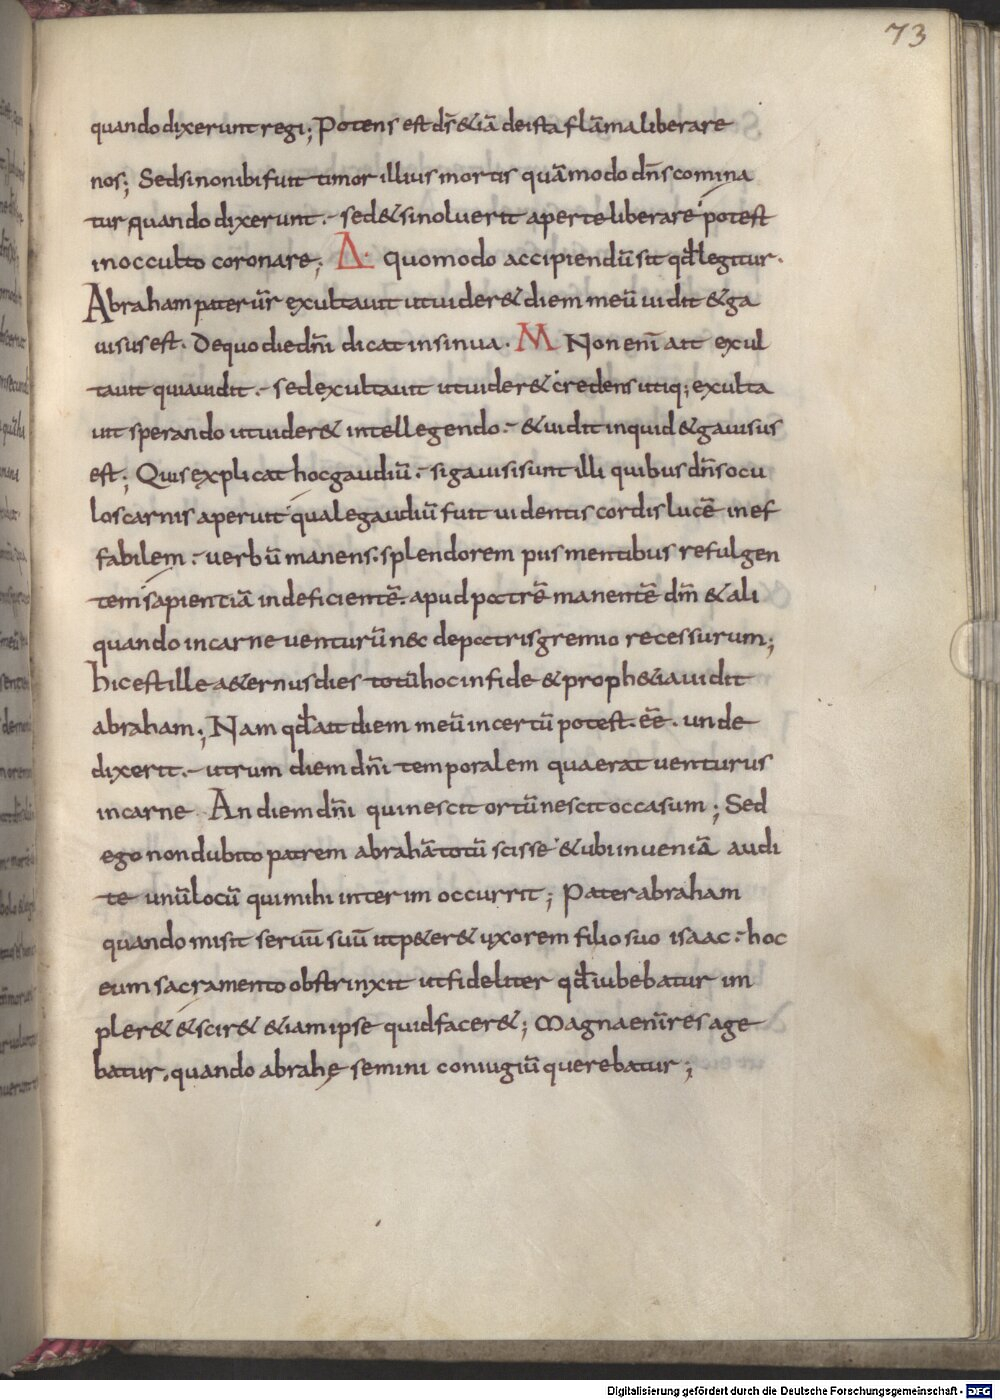 73
quando dixerunt regi; Potens est ds̄ & iā de ista flāma liberare
nos; Sed si non ibi fuit timor illius mortis quā modo dn̄s comina
tur quando dixerunt. sed & si noluerit aperte liberare potest
in occulto coronare; Δ. Quomodo accipiendū sit qđ legitur.
Abraham pater ur̄ exultauit ut uider& diem meū uidit & ga
uisus est. De quo die dn̄i dicat insinua. M Non enī ait exul
tauit quia uidit. sed exultauit ut uider& credens utiq; exulta
uit sperando ut uider& intellegendo. & uidit inquid & gauisus
est; Quis explicat hoc gaudiū. si gauisi sunt illi quibus dn̄s ocu
los carnis aperuit quale gaudiū fuit uidentis cordis lucē inef
fabilem. uerbū manens. splendorem piis mentibus refulgen
tem sapientiā indeficientē. apud patrē manentē dm̄ & ali
quando in carne uenturū nec de patris gremio recessurum;
hic est ille a&ernus dies totū hoc in fide & proph&ia uidit
abraham; Nam qđ ait diem meū incertū potest. eē. unde
dixerit. utrum diem dn̄i temporalem qua erat uenturus
in carne An diem dn̄i qui nescit ortū nescit occasum; Sed
ego non dubito patrem abrahā totū scisse & ubi inueniā audi
te unū locū qui mihi interim occurrit; Pater abraham
quando misit seruū suū ut p&er& uxorem filio suo isaac. hoc
eum sacramento obstrinxit ut fideliter qđ iubebatur im
pler& & scir& & iam ipse quid facer&; Magna enī res age
batur, quando abrahę semini coniugiū querebatur;
Digitalisierung gefördert durch die Deutsche Forschungsgemeinschaft - DFG